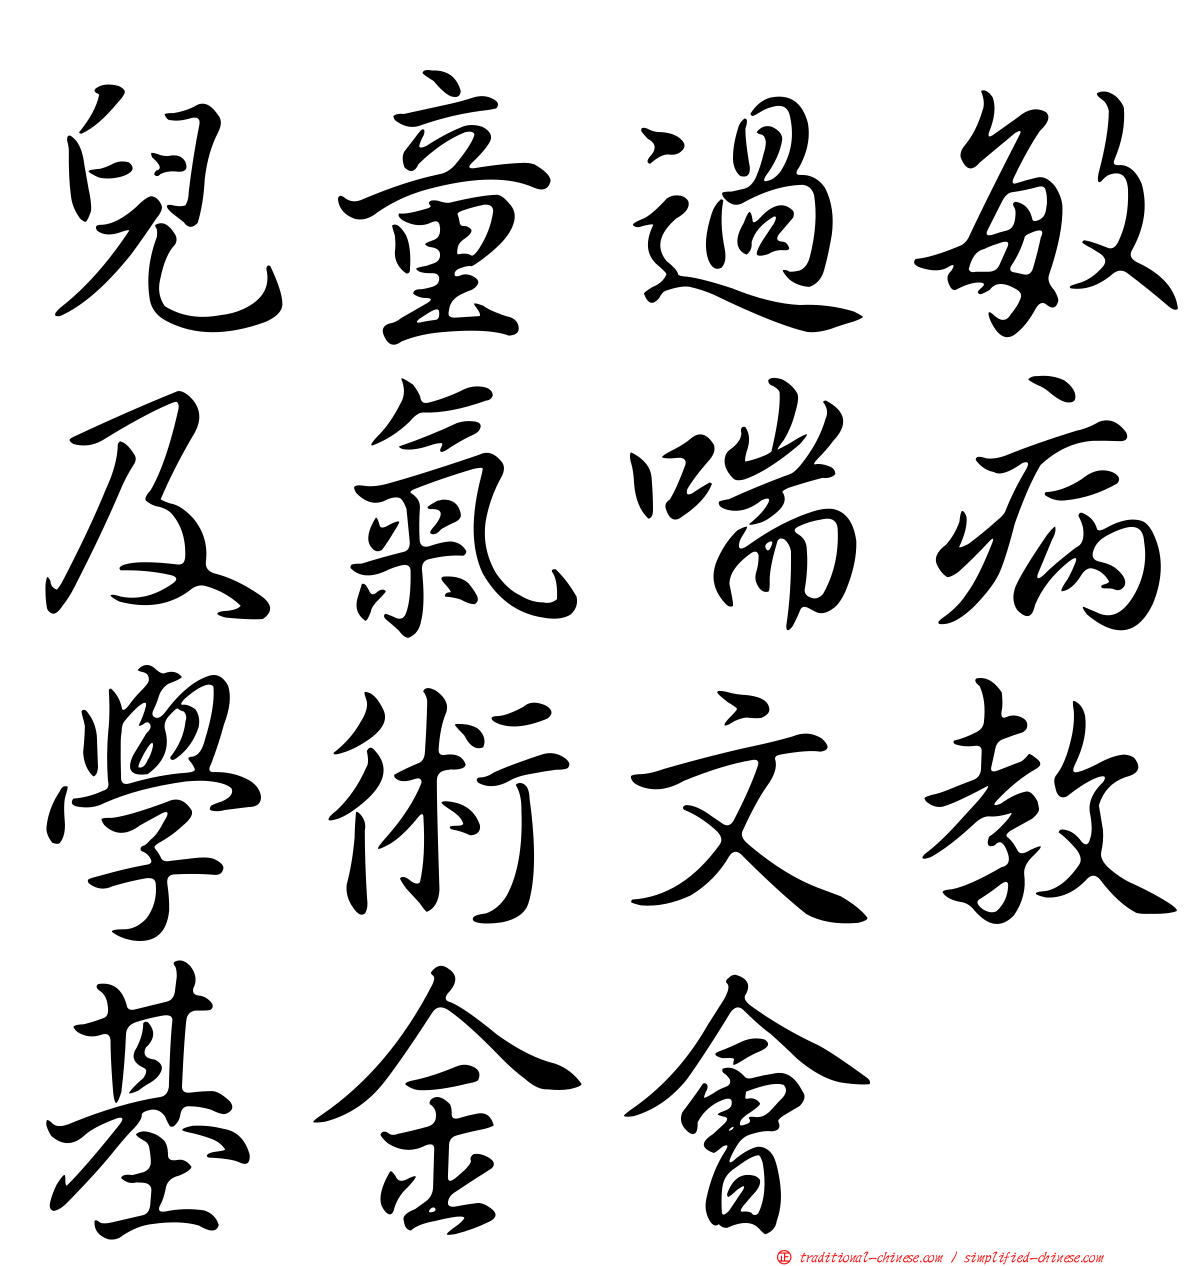 兒童過敏
及氣喘病
學術文教
基金會
正 traditional-chinese.com / simplified-chinese.com